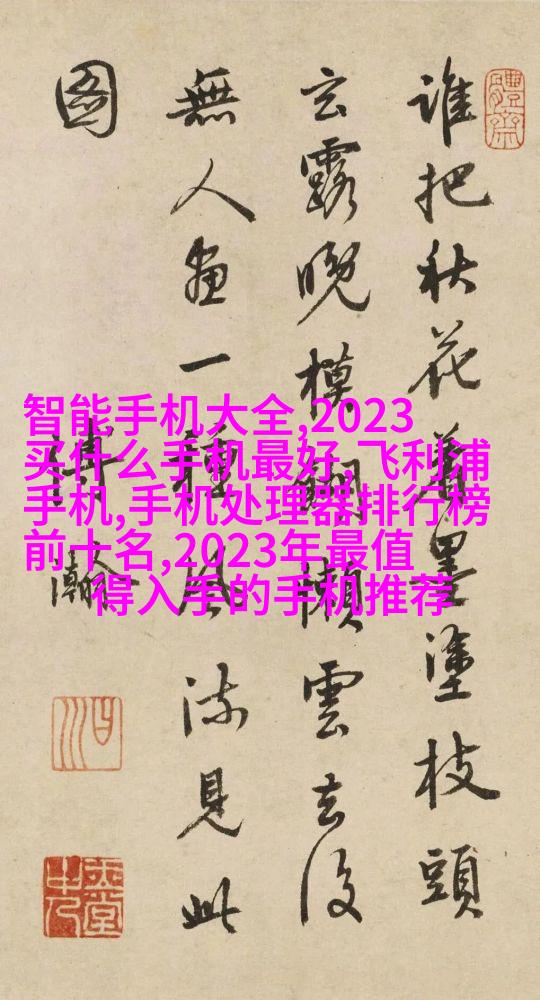 誰把秋花着墨塗枝頭
玄露晚模糊懶雲去後
無人畫一種風流見此
圖
智能手机大全,2023
买什么手机最好,飞利浦
手机,手机处理器排行榜
前十名,2023年最值
得入手的手机推荐